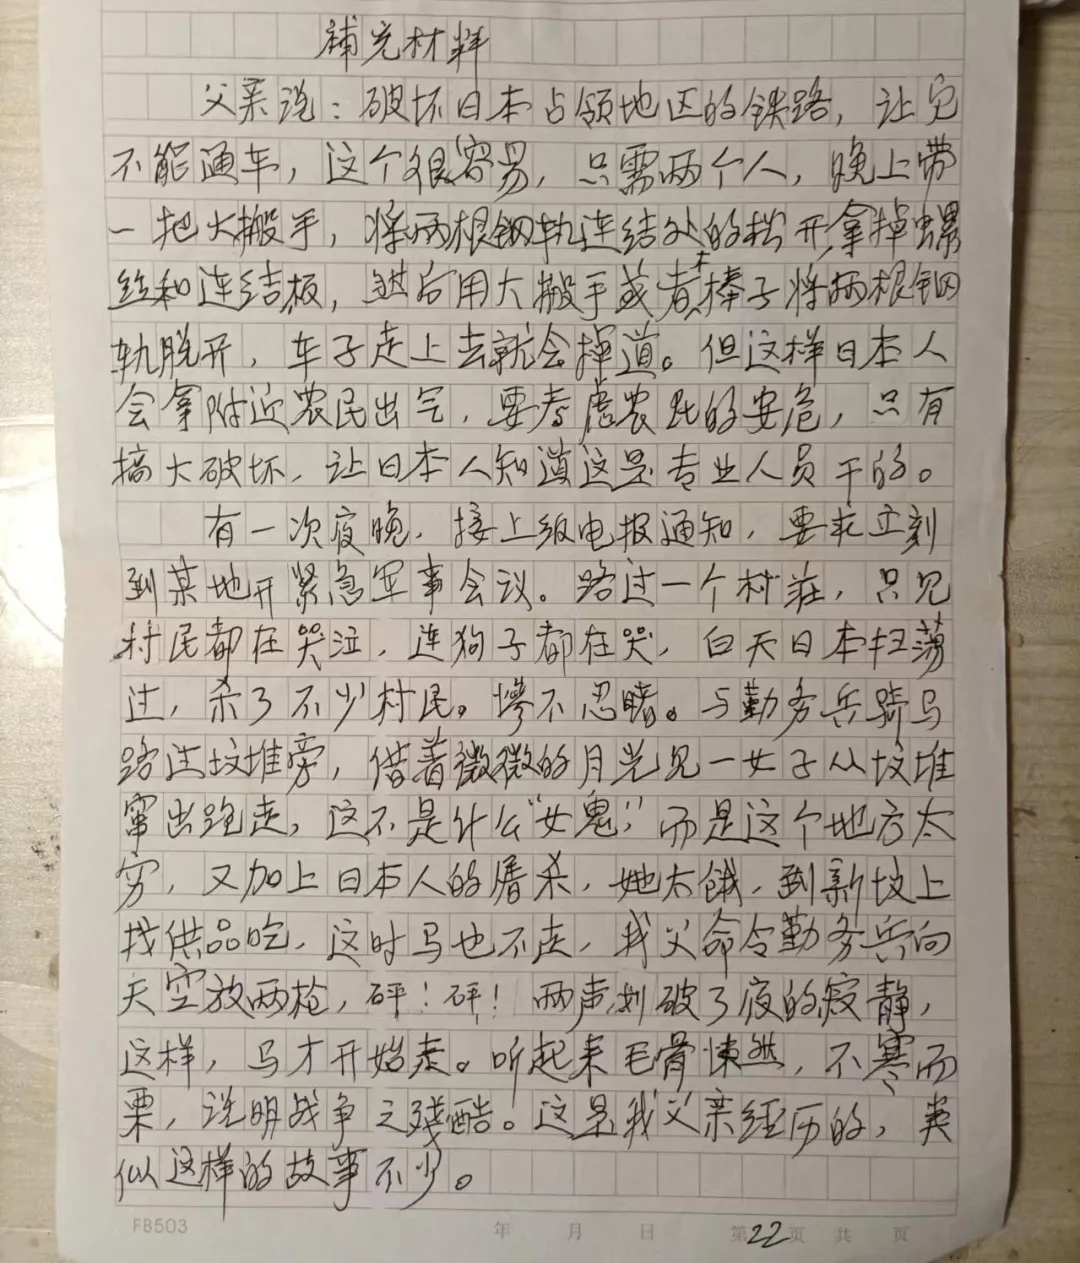 补充材料
父亲说：破坏日本占领地区的铁路，让它
不能通车，这个很容易，只需两个人，晚上带
一把大搬手，将两根钢轨连结处的松开拿掉螺
丝和连结板，然后用大搬手或者木棒子将两根钢
轨脱开，车子走上去就会掉道。但这样日本人
会拿附近农民出气，要考虑农民的安危，只有
搞大破坏，让日本人知道这是专业人员干的。
有一次夜晚，接上级电报通知，要求立刻
到某地开紧急军事会议。路过一个村庄，只见
村民都在哭泣，连狗子都在哭，白天日本扫荡
过，杀了不少村民。惨不忍睹。与勤务兵骑马
路过坟堆旁，借着微微的月光见一女子从坟堆
窜出跑走，这不是什么“女鬼，”而是这个地方太
穷，又加上日本人的屠杀，她太饿，到新坟上
找供品吃，这时马也不走，我父命令勤务兵向
天空放两枪，砰！砰！两声划破了夜的寂静，
这样，马才开始走。听起来毛骨悚然，不寒而
栗，说明战争之残酷。这是我父亲经历的，类
似这样的故事不少。
FB503 年 月 日 第22页 共 页